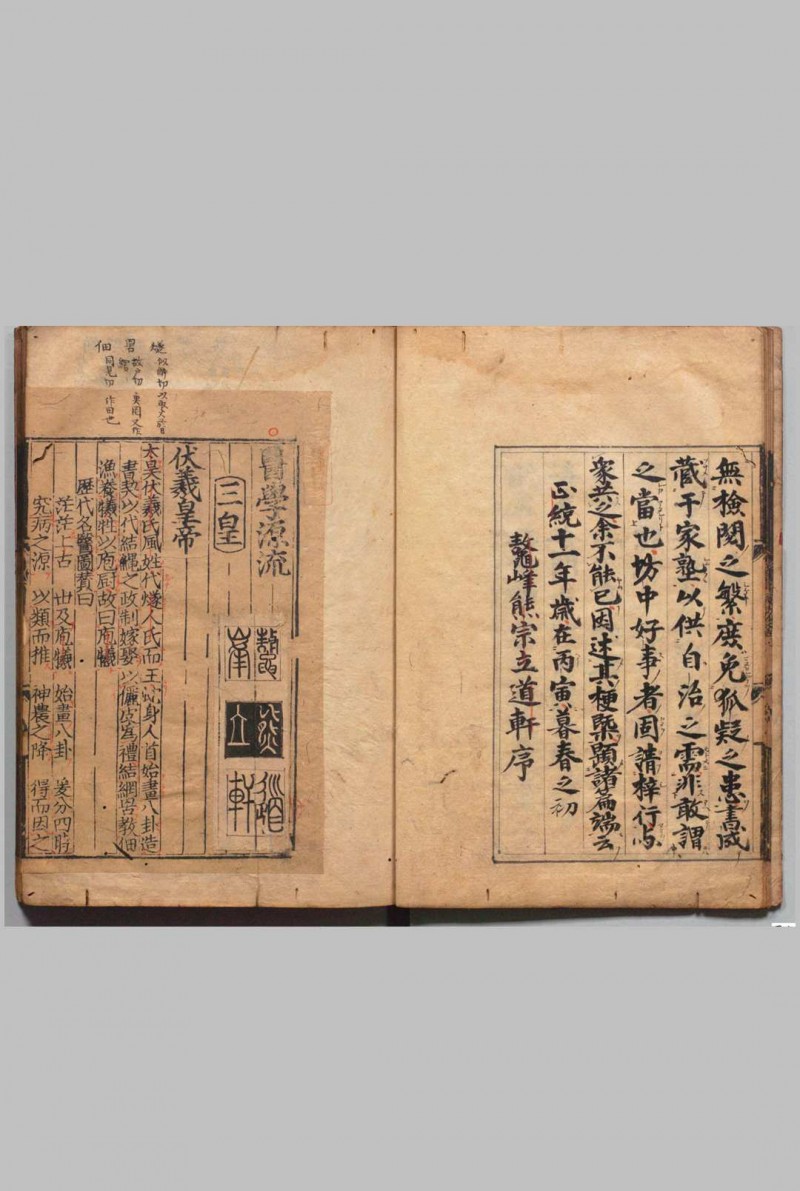 無檢閱之繁庶免狐疑之患書成
藏于家塾以供自治之需非敢謂
之當也坊中好事者固請梓行与
衆共之余不能已因述其梗槩顯諸扁端云
正統十一年歲在丙寅暮春之初
鼇峰熊宗立道軒序
醫學源流
三皇
鼇峯
熊立
道軒
伏羲皇帝
太昊伏羲氏風姓代燧人氏而王蛇身人首始畫八卦造
書契以代結繩之政制嫁娶以儷皮為禮結網罟教佃
漁養犧牲以庖厨故曰庖犧
歷代名醫圖贊曰
茫茫上古 世及庖犧 始畫八卦 爰分四時
究病之源 以類而推 神農之降 得而因之